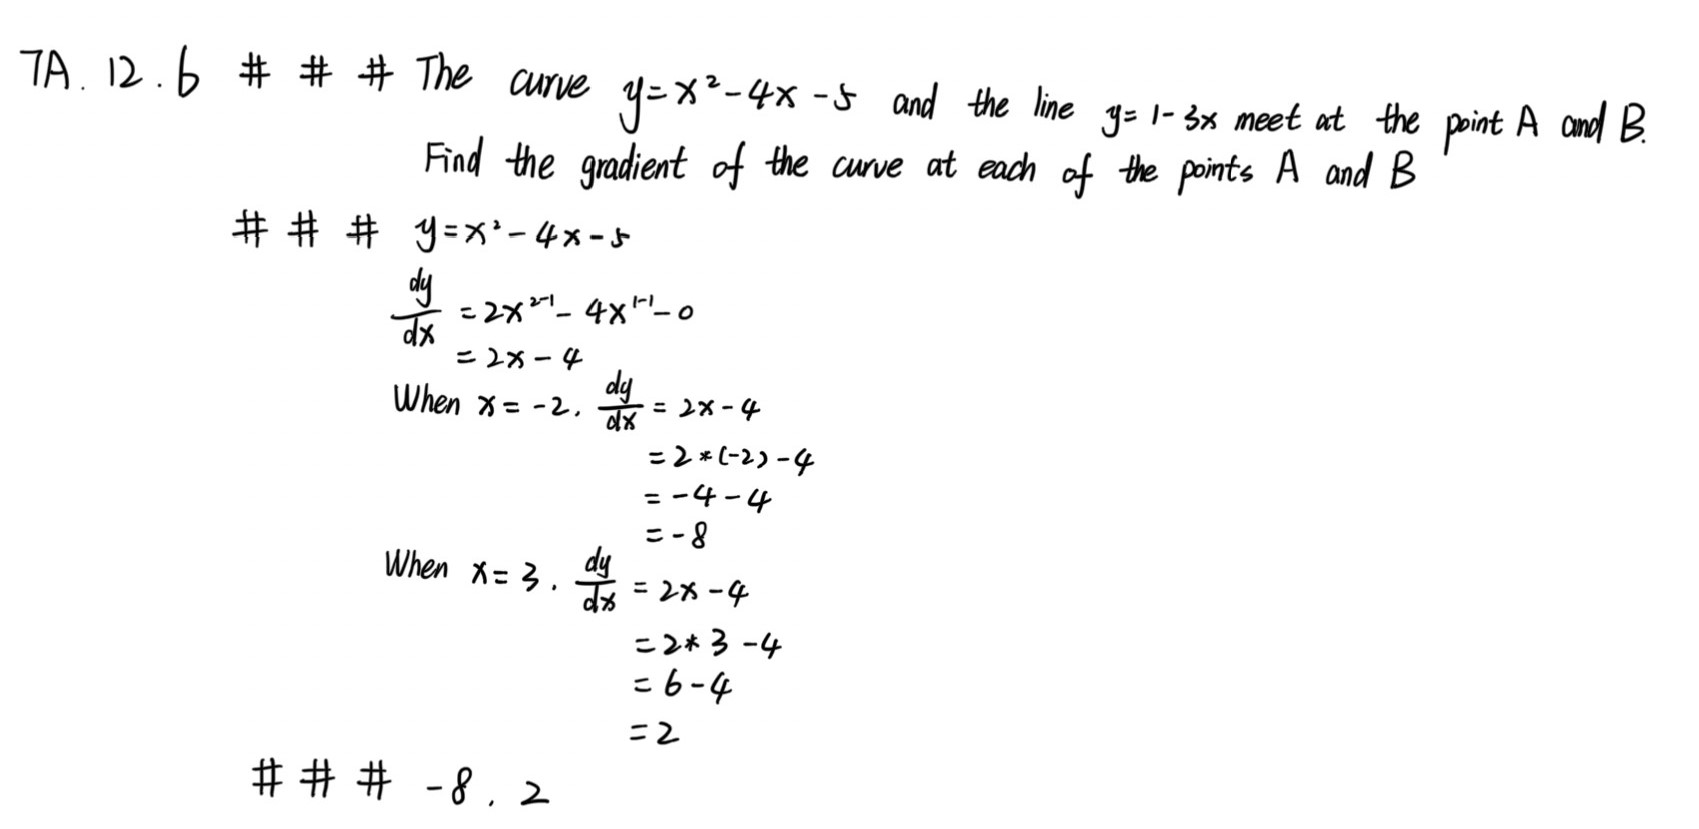 7A.12.b # # # The curve y=x²-4x-5 and the line y=1-3x meet at the point A and B.
Find the gradient of the curve at each of the points A and B
# # # y=x²-4x-5
dy/dx = 2x²⁻¹-4x¹⁻¹-0
= 2x-4
When x=-2. dy/dx = 2x-4
= 2*(-2)-4
= -4-4
= -8
When x=3. dy/dx = 2x-4
= 2*3-4
= 6-4
= 2
# # # -8. 2